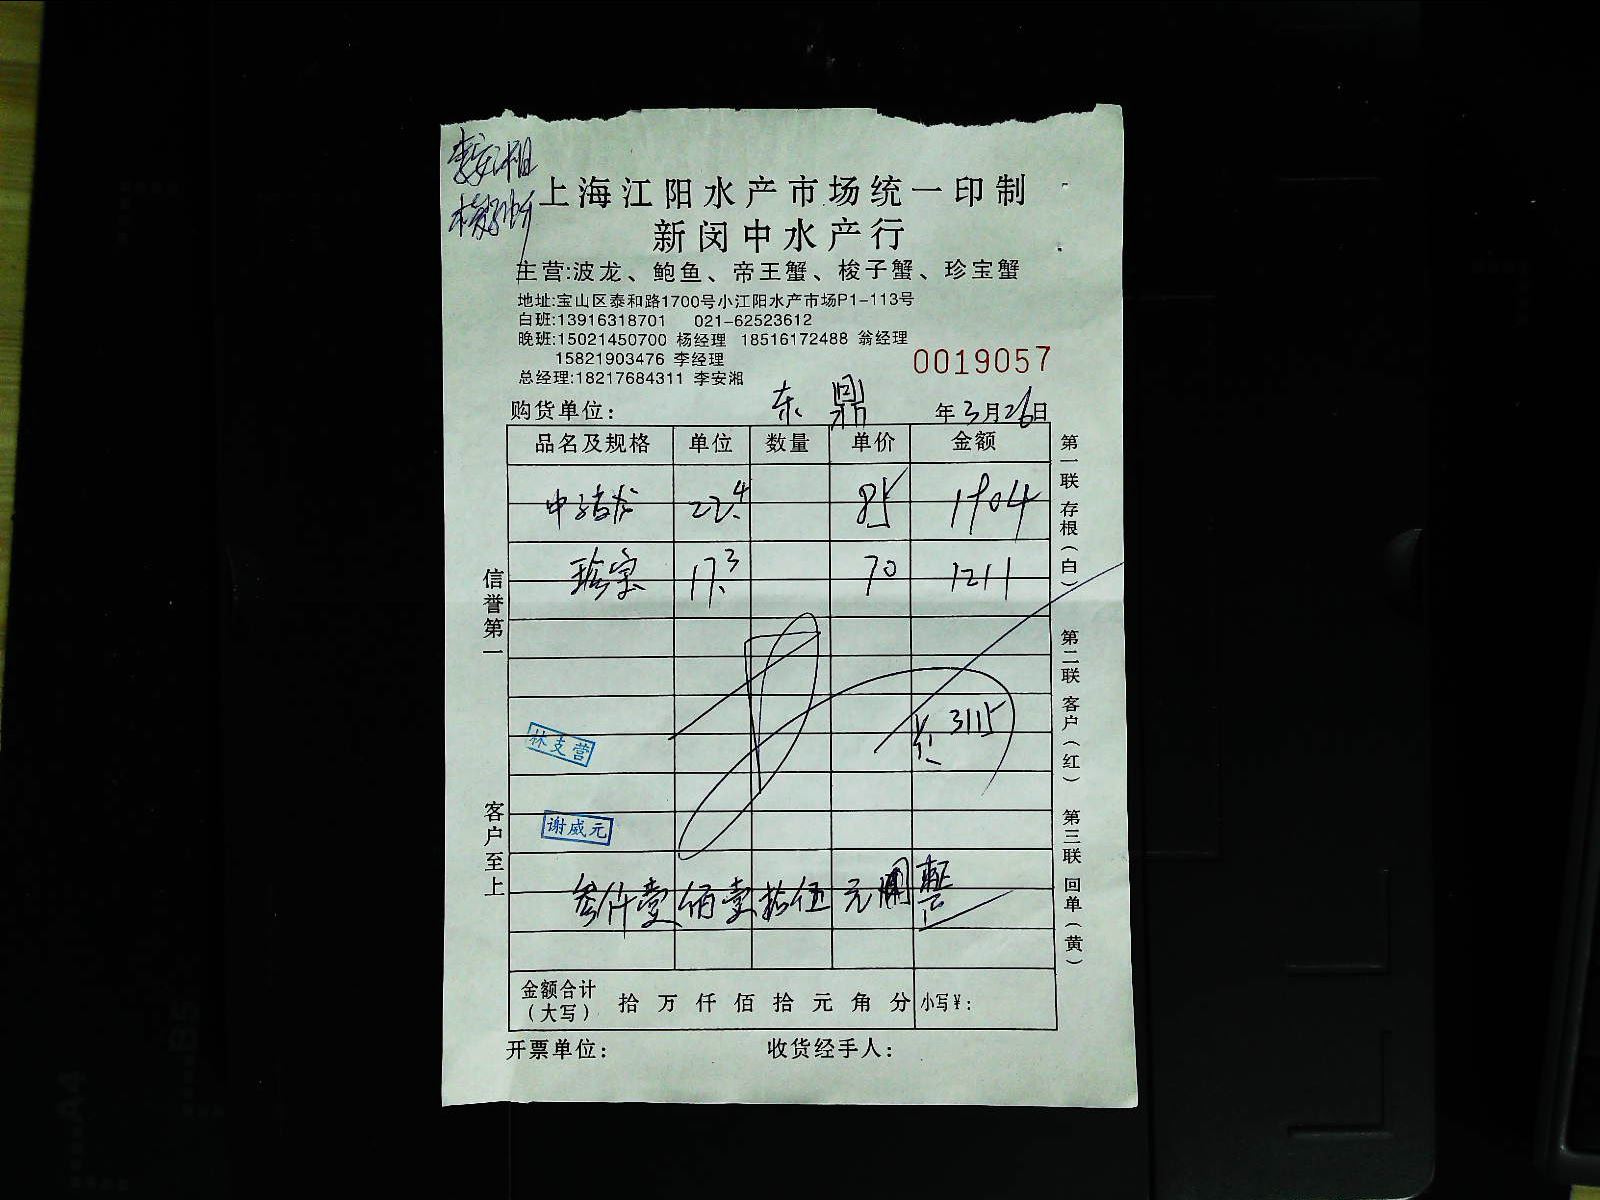 李安湘
上海江阳水产市场统一印制
新闵中水产行
主营:波龙、鲍鱼、帝王蟹、梭子蟹、珍宝蟹
地址:宝山区泰和路1700号小江阳水产市场P1-113号
白班:13916318701 021-62523612
晚班:15021450700 杨经理 18516172488 翁经理
15821903476 李经理
总经理:18217684311 李安湘
0019057
购货单位: 东鼎 年3月26日
品名及规格 单位 数量 单价 金额
中 龙 22.4 85 1904
珍宝 17.3 70 1211
总 3115
林支营
谢威元
叁仟壹佰壹拾伍元 整
金额合计(大写) 拾 万 仟 佰 拾 元 角 分 小写¥:
开票单位: 收货经手人:
信誉第一
客户至上
第一联 存根(白)
第二联 客户(红)
第三联 回单(黄)